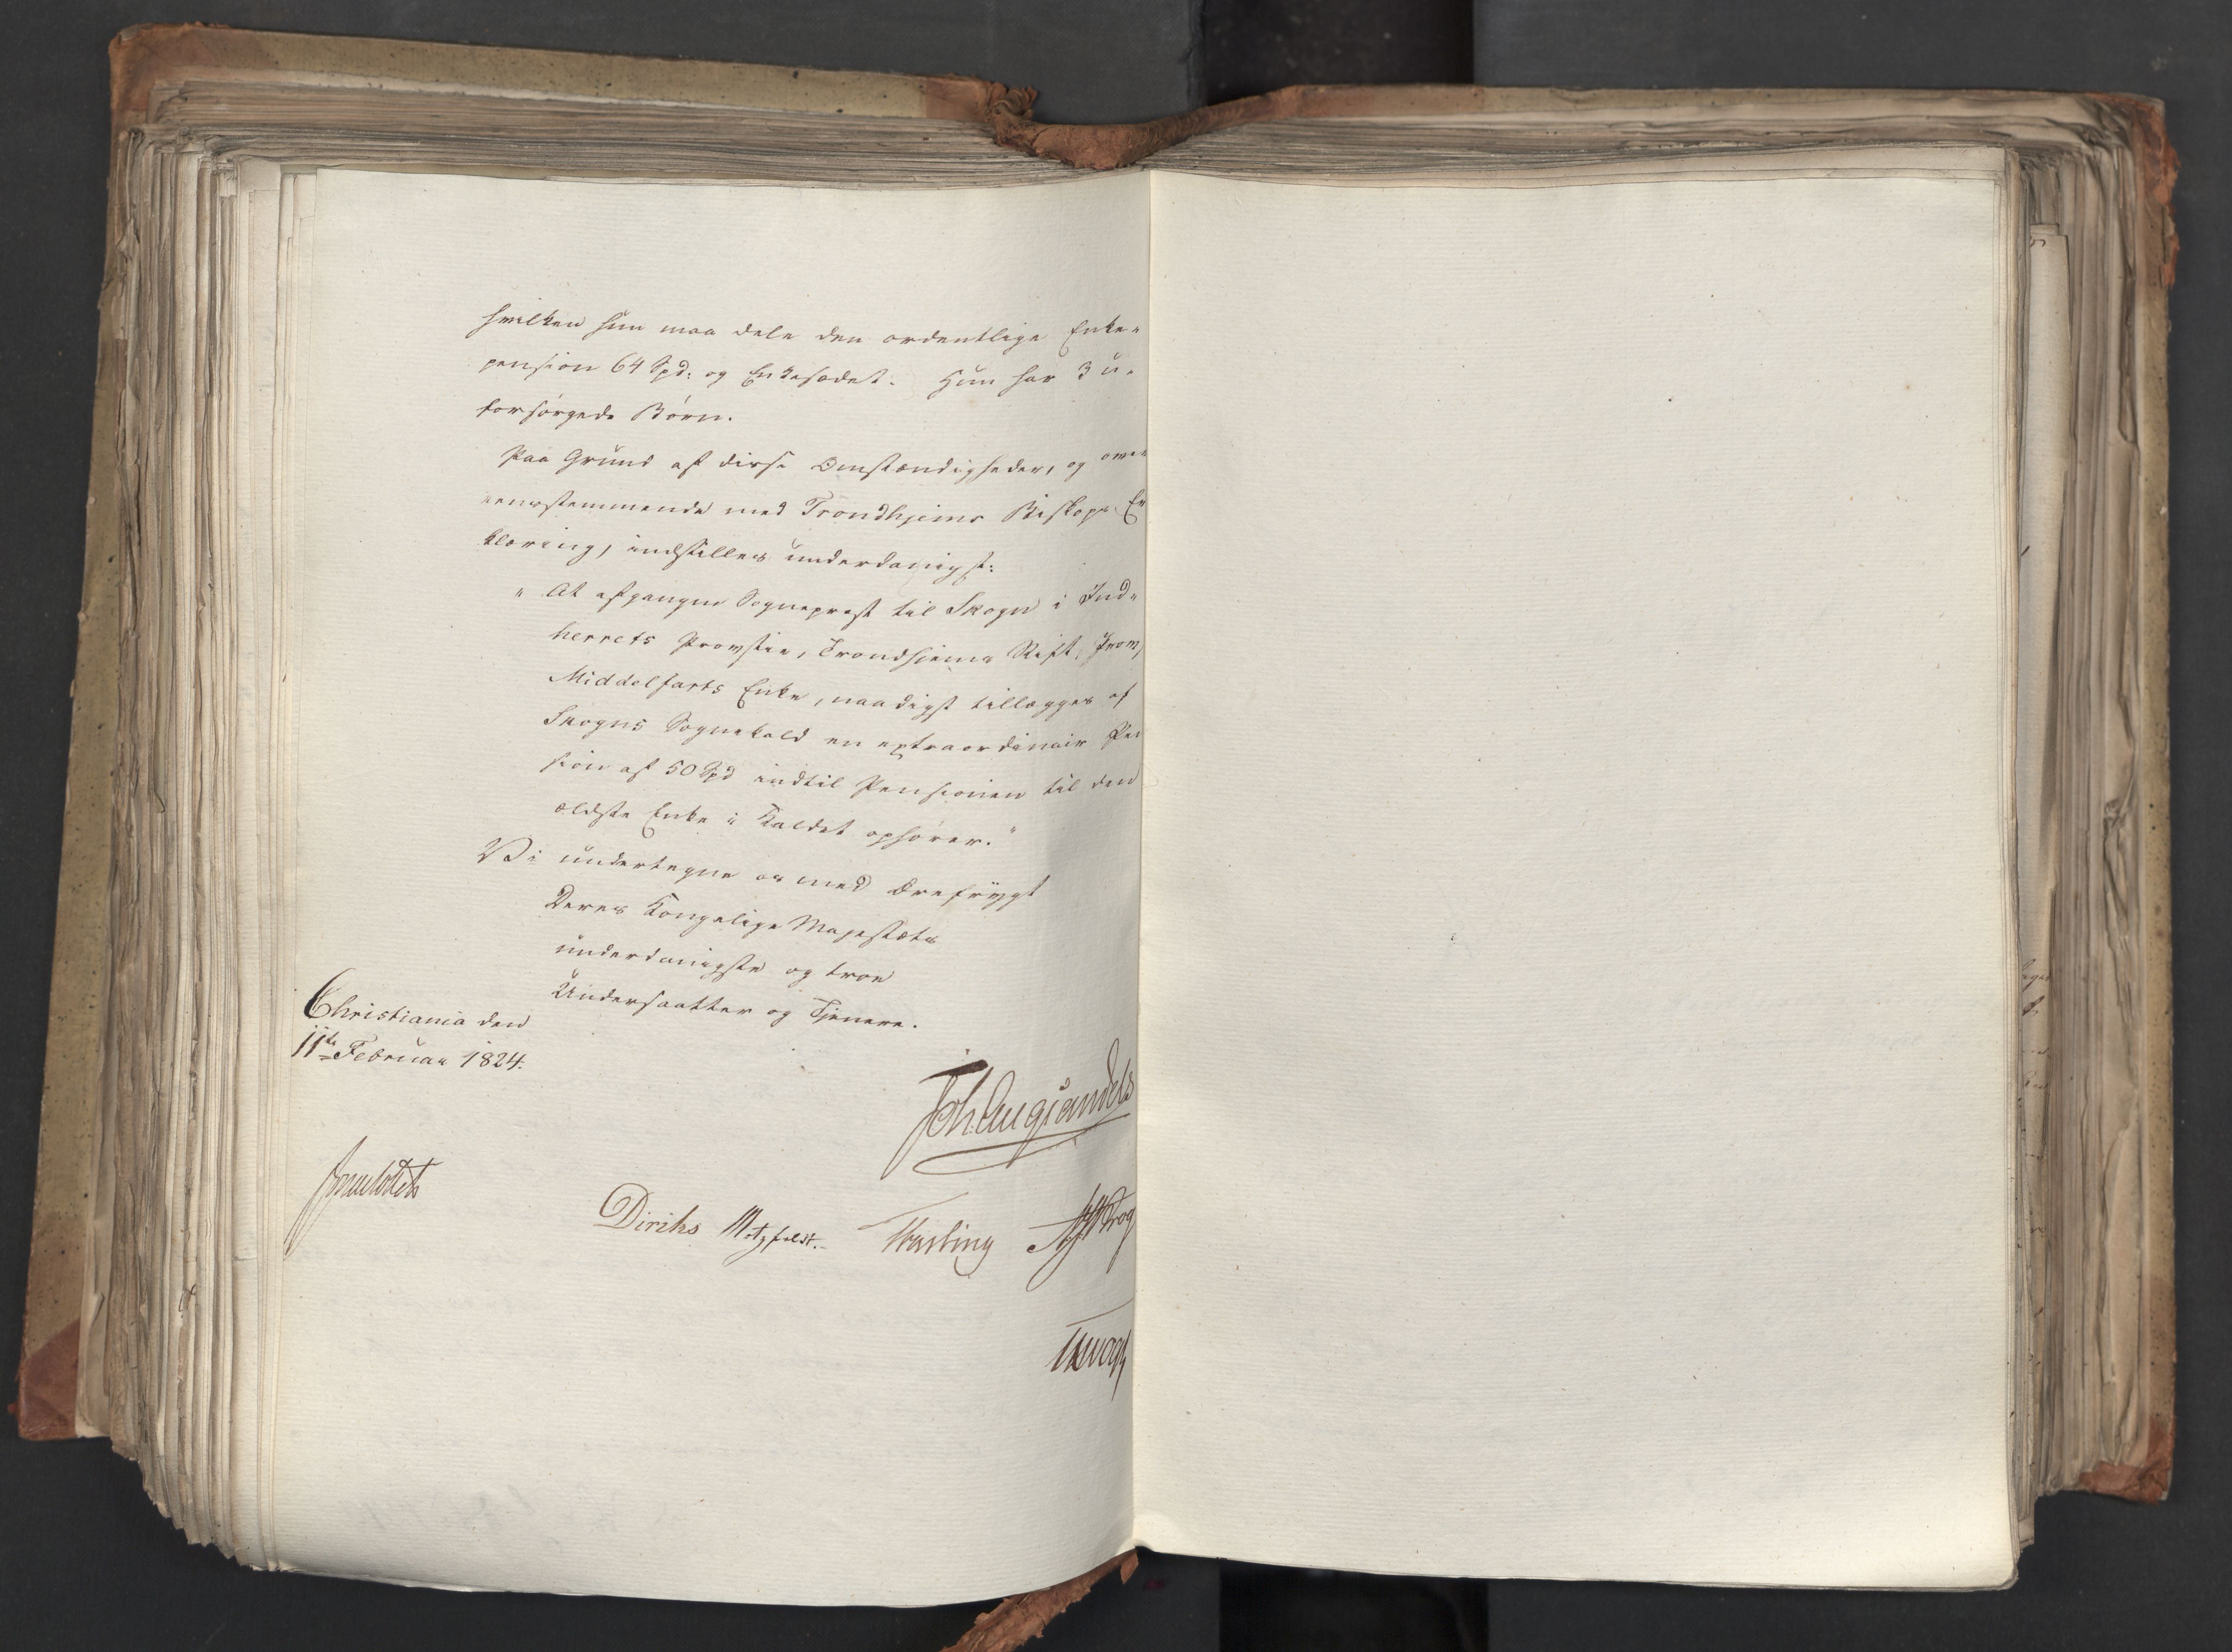 hvilken hun maa dele den ordentlige Enke-
pension 64 Spd: og Enkesædet. Hun har 3 u-
forsørgede Børn.
Paa Grund af disse Omstændigheder, og over-
eensstemmende med Trondhjems Biskops Er
klæring, indstilles underdanigst:
" At afgangne Sognepræst til Skogn i Ind-
herrets Provstie, Trondhjems Stift, From,
Middelfarts Enke, naadigst tillægges af
Skogns Sognekald en extraordinair Pen
sion af 50 Spd indtil Pensionen til den
ældste Enke i Kaldet ophører."
Vi undertegne os med Ærefrygt
Deres Kongelige Majestæts
underdanigste og troe
Undersaatter og Tjenere.
Christiania den
11te Februar 1824.
Joh. Aug. Sandels
Diriks Motzfeldt. Fasting Krog